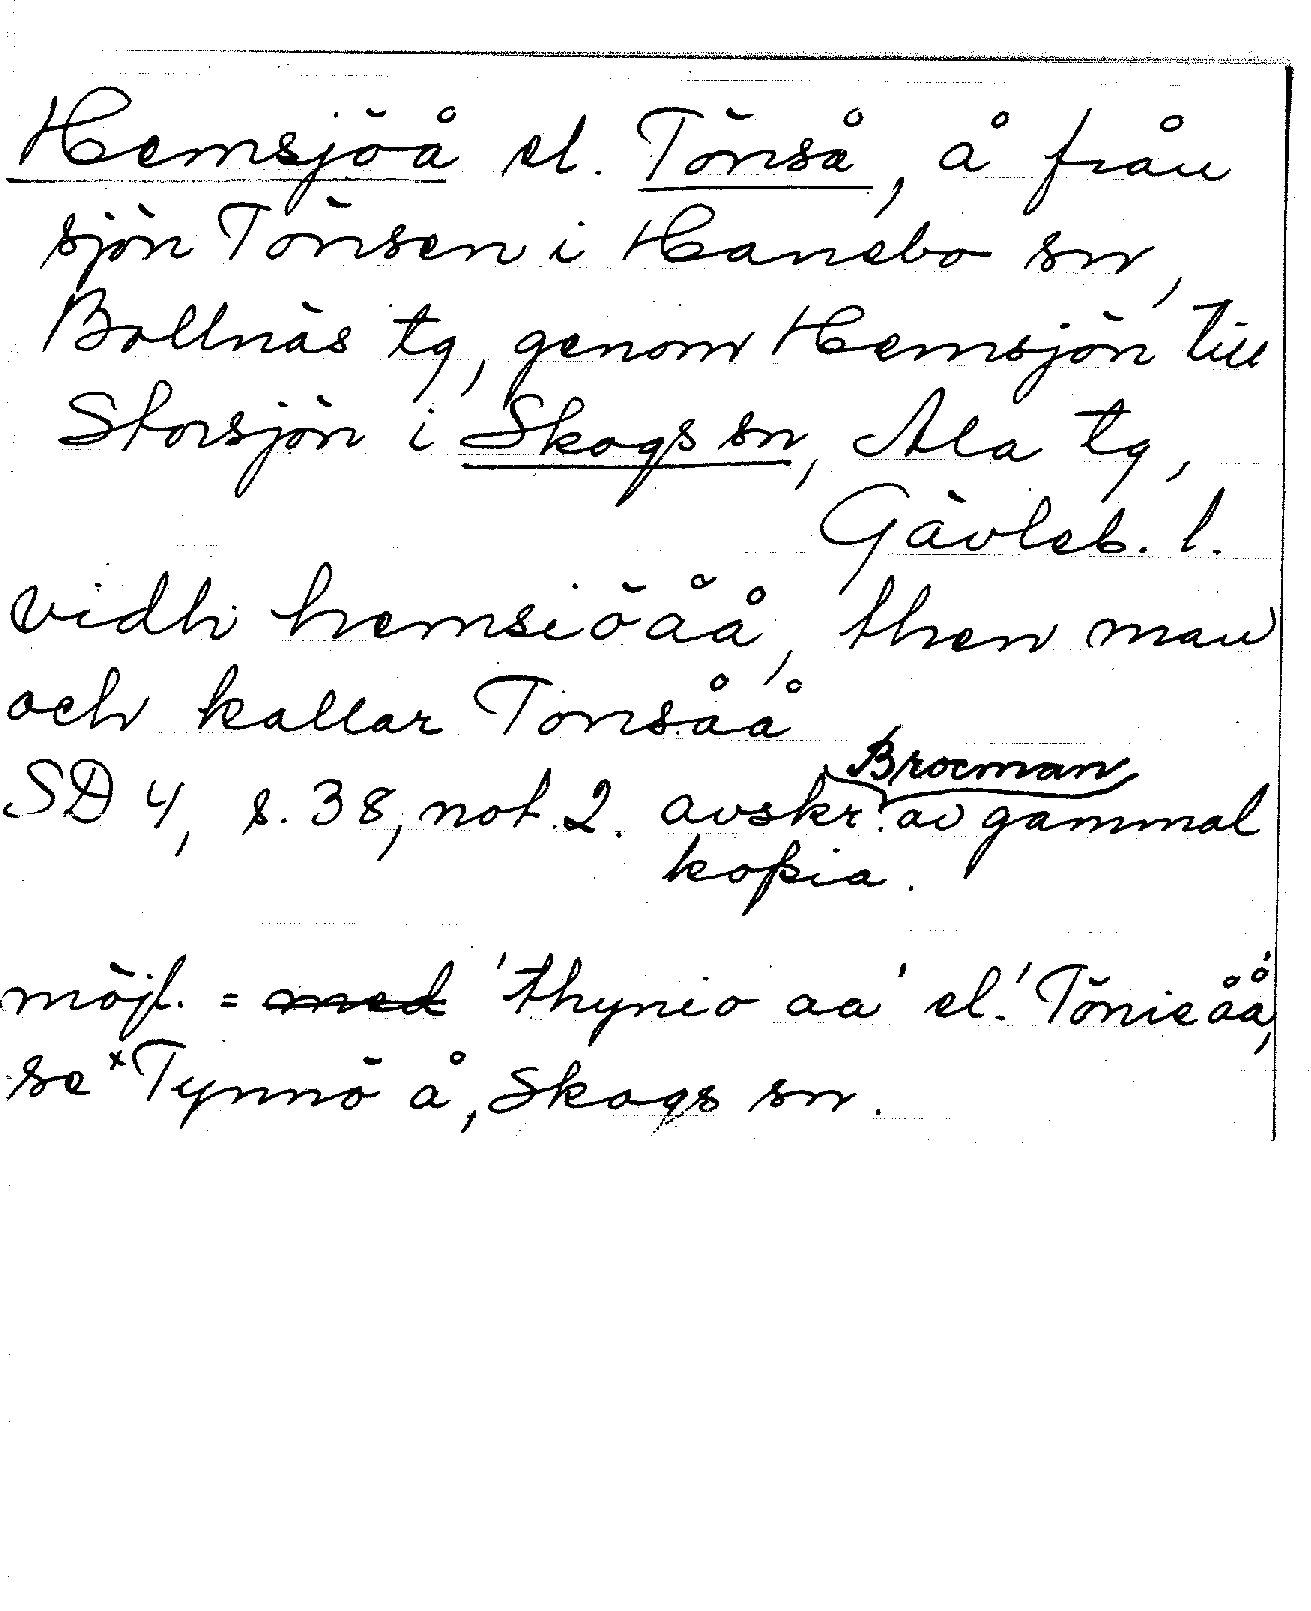 Hemsjöå el. Tönså, å från
sjön Tönsen i Hanebo sn,
Bollnäs tg, genom Hemsjön till
Storsjön i Skogs sn, Ala tg,
Gävleb. l.
vidh hemsiöåå, then man
och kallar Tonsåå
Brocman
SD 4, s. 38, not 2. avskr. av gammal
kopia.
möjl. = med 'thynio aa' el. 'Tönieåå',
se *Tynnö å, Skogs sn.